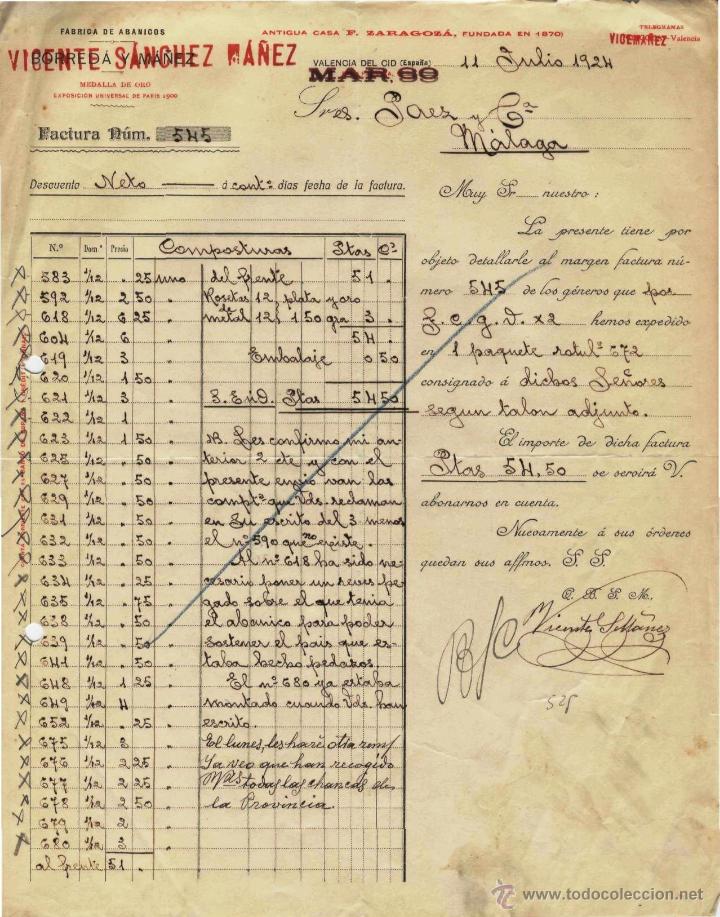 FÁBRICA DE ABANICOS
ANTIGUA CASA F. ZARAGOZÁ, FUNDADA EN 1870)
TELEGRAMAS
VICENTE SÁNCHEZ MÁÑEZ
BORREDÁ Y MÁÑEZ
VICEMAÑEZ-Valencia
MEDALLA DE ORO
EXPOSICIÓN UNIVERSAL DE PARIS 1900
VALENCIA DEL CID (España) 11 Julio 1924
MAR 89
Sres. Paez y Cª
Málaga
Factura Núm. 545
Descuento Neto á contº días fecha de la factura.
Muy Sr nuestro:
La presente tiene por
objeto detallarle al margen factura nú-
mero 545 de los géneros que por
F. c. g. V. x2 hemos expedido
en 1 paquete rotulº 672
consignado á dichos Señores
segun talon adjunto.
El importe de dicha factura
Ptas 54,50 se servirá V.
abonarnos en cuenta.
Nuevamente á sus órdenes
quedan sus affmos. S. S.
Q. B. S. M.
Vicente S. Máñez
B/C
525
N.º Docª Precio Composturas Ptas Cs
583 1/12 " 25 uno del frente 51 "
592 1/12 2 50 " Rosetas 12, plata y oro
618 1/12 6 25 " metal 12, 1 50 gra 3 "
604 1/12 6 " 54 "
619 1/12 3 " Embalaje 0 50
620 1/12 1 50 "
621 1/12 3 " S. E. ú O. Ptas 54 50
622 1/12 1 "
623 1/12 1 50 " NB. Les confirmo mi an-
625 1/12 " 50 " terior 2 cte y con el
627 1/12 " 50 " presente envio van las
629 1/12 " 50 " comptª que Vds. reclaman
631 1/12 " 50 " en Su escrito del 3 menos
632 1/12 " 50 " el nº 590 que no existe.
633 1/12 " 50 " Al nº 618 ha sido ne-
634 1/12 " 25 " cesario poner un reves pe-
635 1/12 " 75 " gado sobre el que tenia
638 1/12 " 50 " el abanico para poder
639 1/12 " 50 " sostener el pais que es-
641 1/12 " 50 " taba hecho pedazos.
648 1/12 1 25 " El nº 680 ya estaba
649 1/12 " 4 " montado cuando Vds. han
652 1/12 " 25 " escrito.
675 1/12 3 " El lunes, les haré otra rem/
676 1/12 2 25 " Ya veo que han recogido
677 1/12 2 25 " todas las chancas de
678 1/12 2 50 " la Provincia.
679 1/12 2 "
680 1/12 3 "
al frente 51 "
www.todocoleccion.net